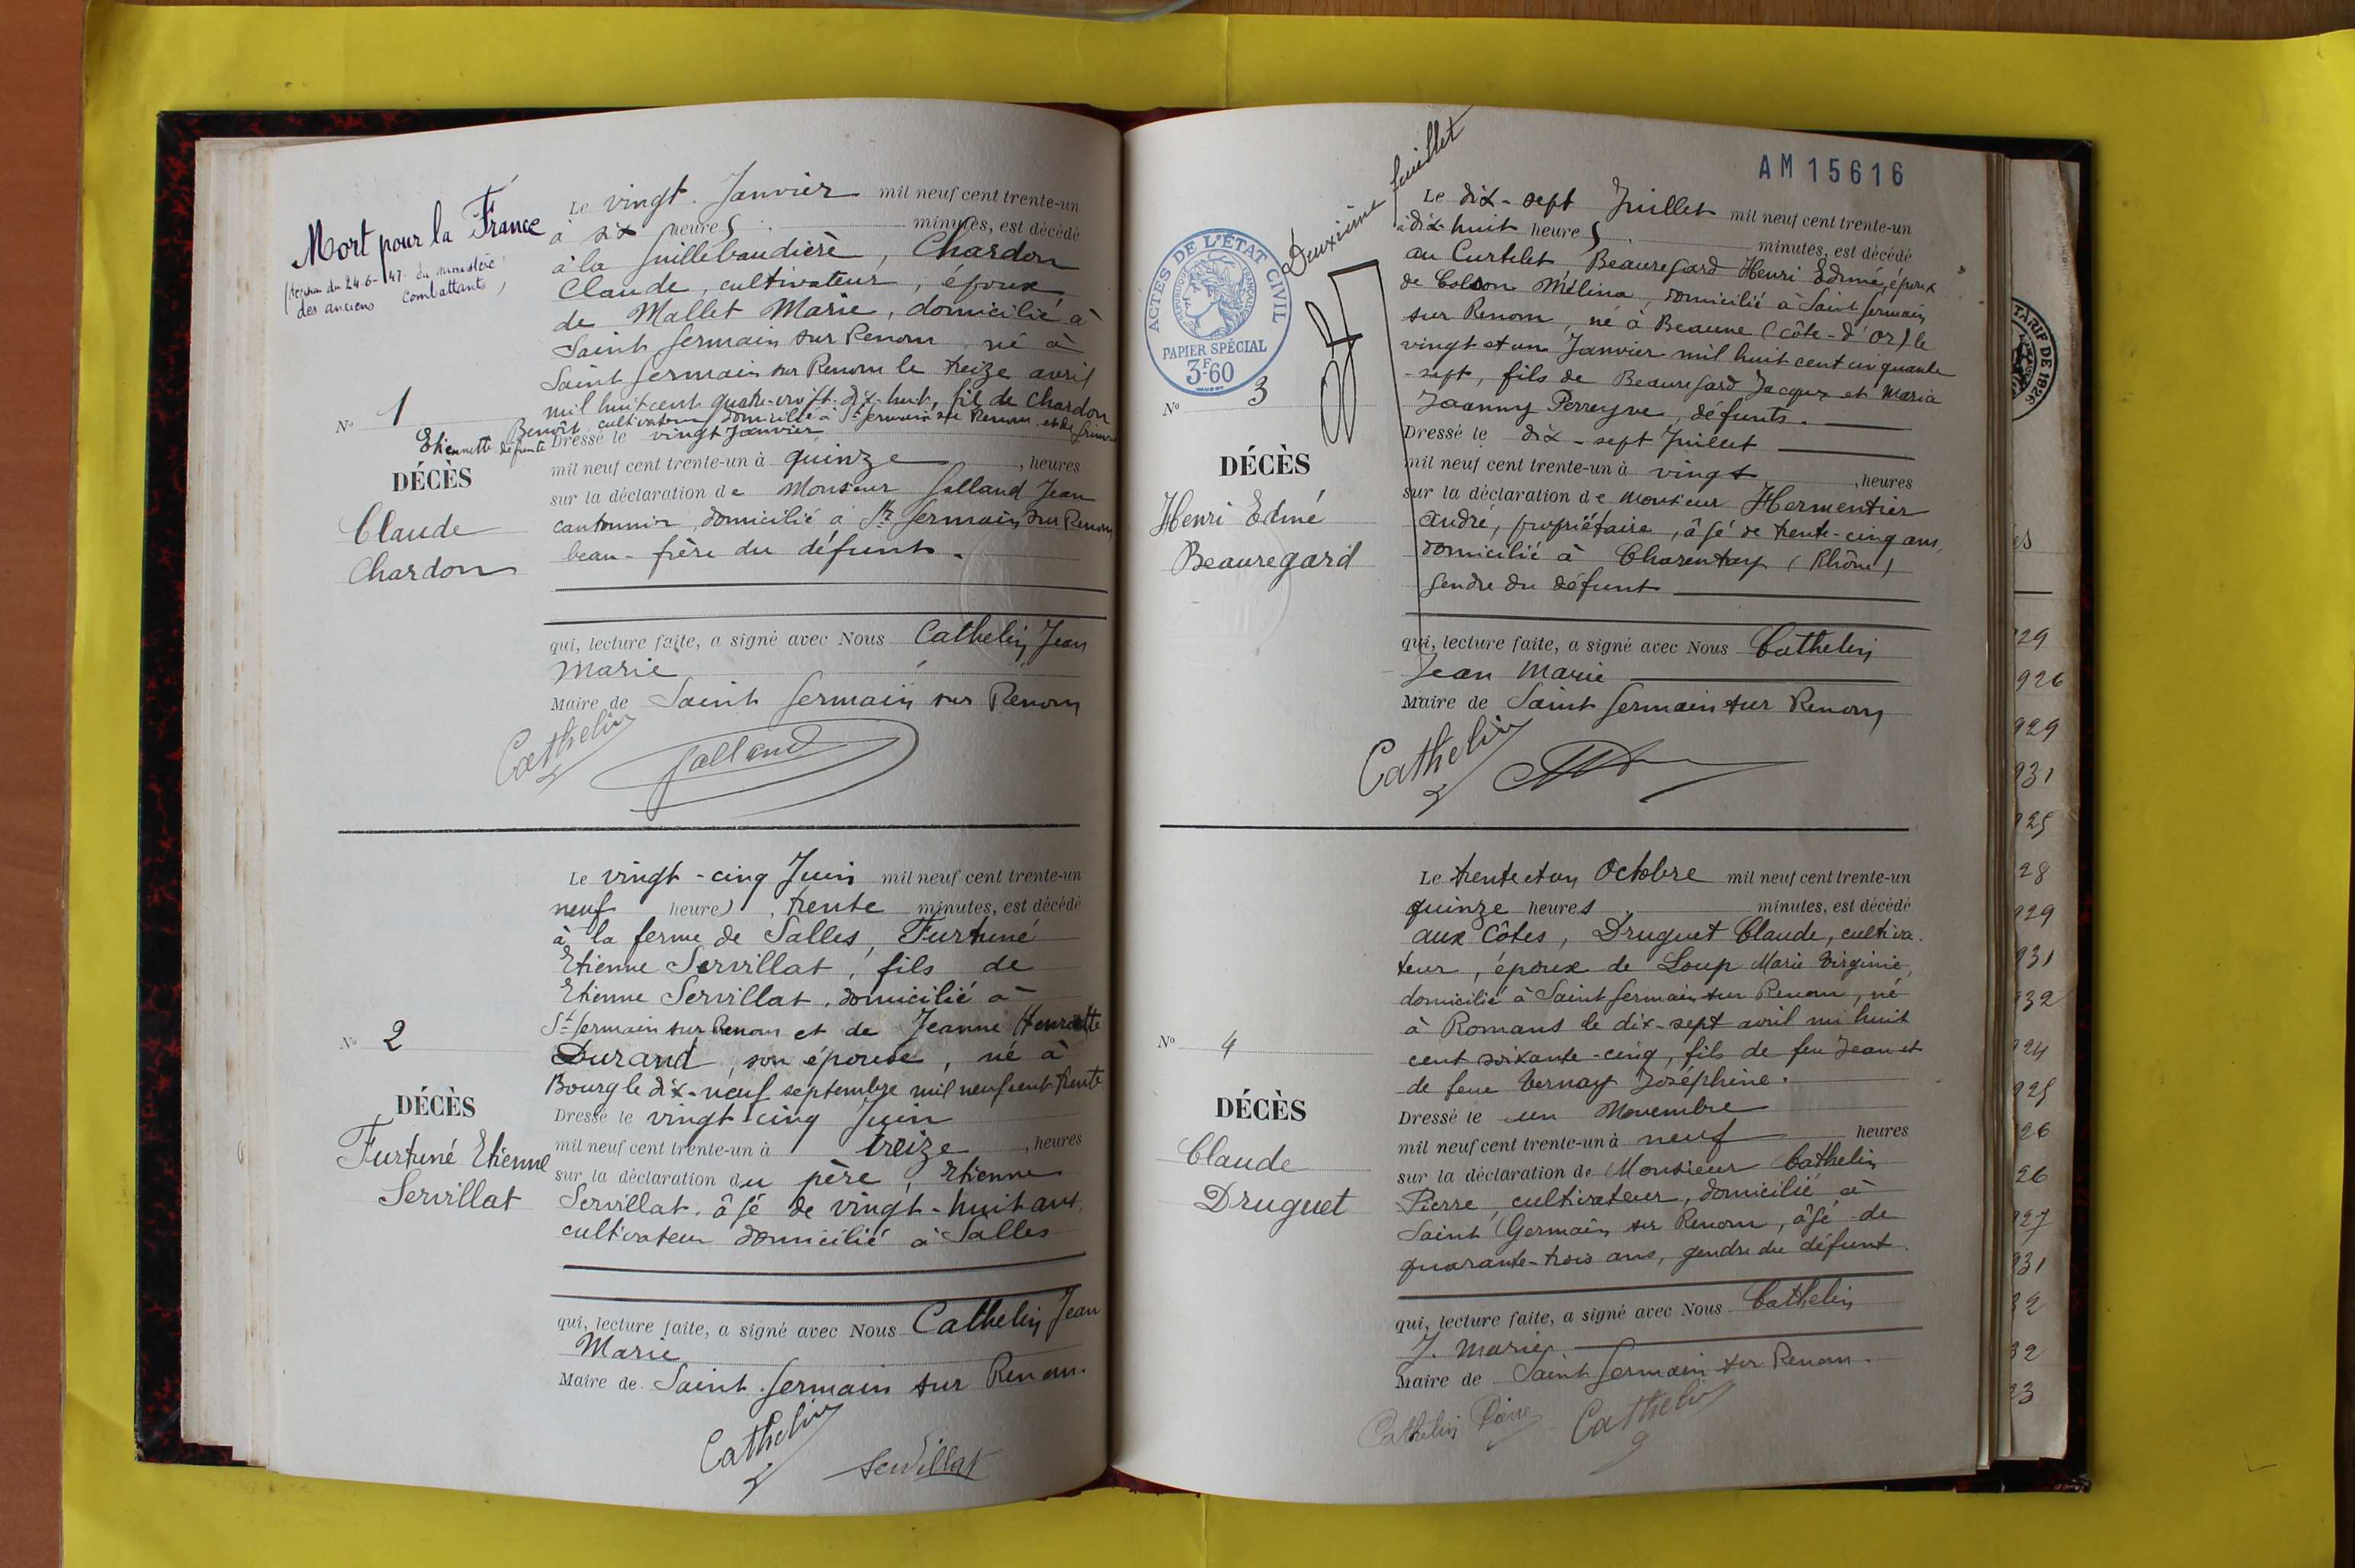 Mort pour la France
du 24-6-47 du ministère
des anciens combattants
Le vingt Janvier mil neuf cent trente-un
à six heures minutes, est décédé
à la Guillebaudière, Chardon
Claude, cultivateur, époux
de Mallet Marie, domicilié à
Saint Germain sur Renom né à
Saint Germain sur Renom le treize avril
mil huit cent quatre-vingt-dix-huit, fils de Chardon
Benoît cultivateur domicilié à St Germain sur Renom et de
Etiennette défunte
Dressé le vingt Janvier
mil neuf cent trente-un à quinze, heures
sur la déclaration de Monsieur Galland Jean
cantonnier, domicilié à St Germain sur Renom
beau-frère du défunt.
N° 1
DÉCÈS
Claude
Chardon
qui, lecture faite, a signé avec Nous Cathelin Jean
Marie
Maire de Saint Germain sur Renom
Cathelin
Galland
Le vingt-cinq Juin mil neuf cent trente-un
neuf heures, trente minutes, est décédé
à la ferme de Salles, Furtuné
Etienne Servillat, fils de
Etienne Servillat, domicilié à
St Germain sur Renom et de Jeanne Henriette
Durand, son épouse, né à
Bourg le dix-neuf septembre mil neuf cent trente
Dressé le vingt-cinq Juin
mil neuf cent trente-un à treize, heures
sur la déclaration du père, Etienne
Servillat, âgé de vingt-huit ans,
cultivateur domicilié à Salles
N° 2
DÉCÈS
Furtuné Etienne
Servillat
qui, lecture faite, a signé avec Nous Cathelin Jean
Marie
Maire de Saint Germain sur Renom.
Cathelin
Servillat
Deuxième feuillet
AM15616
ACTES DE L'ÉTAT CIVIL
RÉPUBLIQUE FRANÇAISE
PAPIER SPÉCIAL
3F60
Le dix-sept Juillet mil neuf cent trente-un
à dix-huit heures minutes, est décédé
au Curtelet, Beauregard Henri Edmé, époux
de Colson Mélina, domicilié à Saint Germain
sur Renom, né à Beaune (côte-d'or) le
vingt et un Janvier mil huit cent cinquante
-sept, fils de Beauregard Jacques et Maria
Joanny Perreyve, défunts.
Dressé le dix-sept Juillet
mil neuf cent trente-un à vingt, heures
sur la déclaration de Monsieur Hermentier
André, propriétaire, âgé de trente-cinq ans,
domicilié à Charentay (Rhône)
gendre du défunt
N° 3
DÉCÈS
Henri Edmé
Beauregard
qui, lecture faite, a signé avec Nous Cathelin
Jean Marie
Maire de Saint Germain sur Renom
Cathelin
Le trente et un Octobre mil neuf cent trente-un
quinze heures minutes, est décédé
aux Côtes, Druguet Claude, cultiva-
teur, époux de Loup Marie Virginie,
domicilié à Saint Germain sur Renom, né
à Romans le dix-sept avril mil huit
cent soixante-cinq, fils de feu Jean et
de feue Vernay Joséphine.
Dressé le un Novembre
mil neuf cent trente-un à neuf heures
sur la déclaration de Monsieur Cathelin
Pierre, cultivateur, domicilié à
Saint Germain sur Renom, âgé de
quarante-trois ans, gendre du défunt.
N° 4
DÉCÈS
Claude
Druguet
qui, lecture faite, a signé avec Nous Cathelin
J. Marie
Maire de Saint Germain sur Renom.
Cathelin Pierre
Cathelin
TARIF DE 1926
es
929
926
929
931
925
28
929
931
932
924
925
926
26
927
931
32
32
33